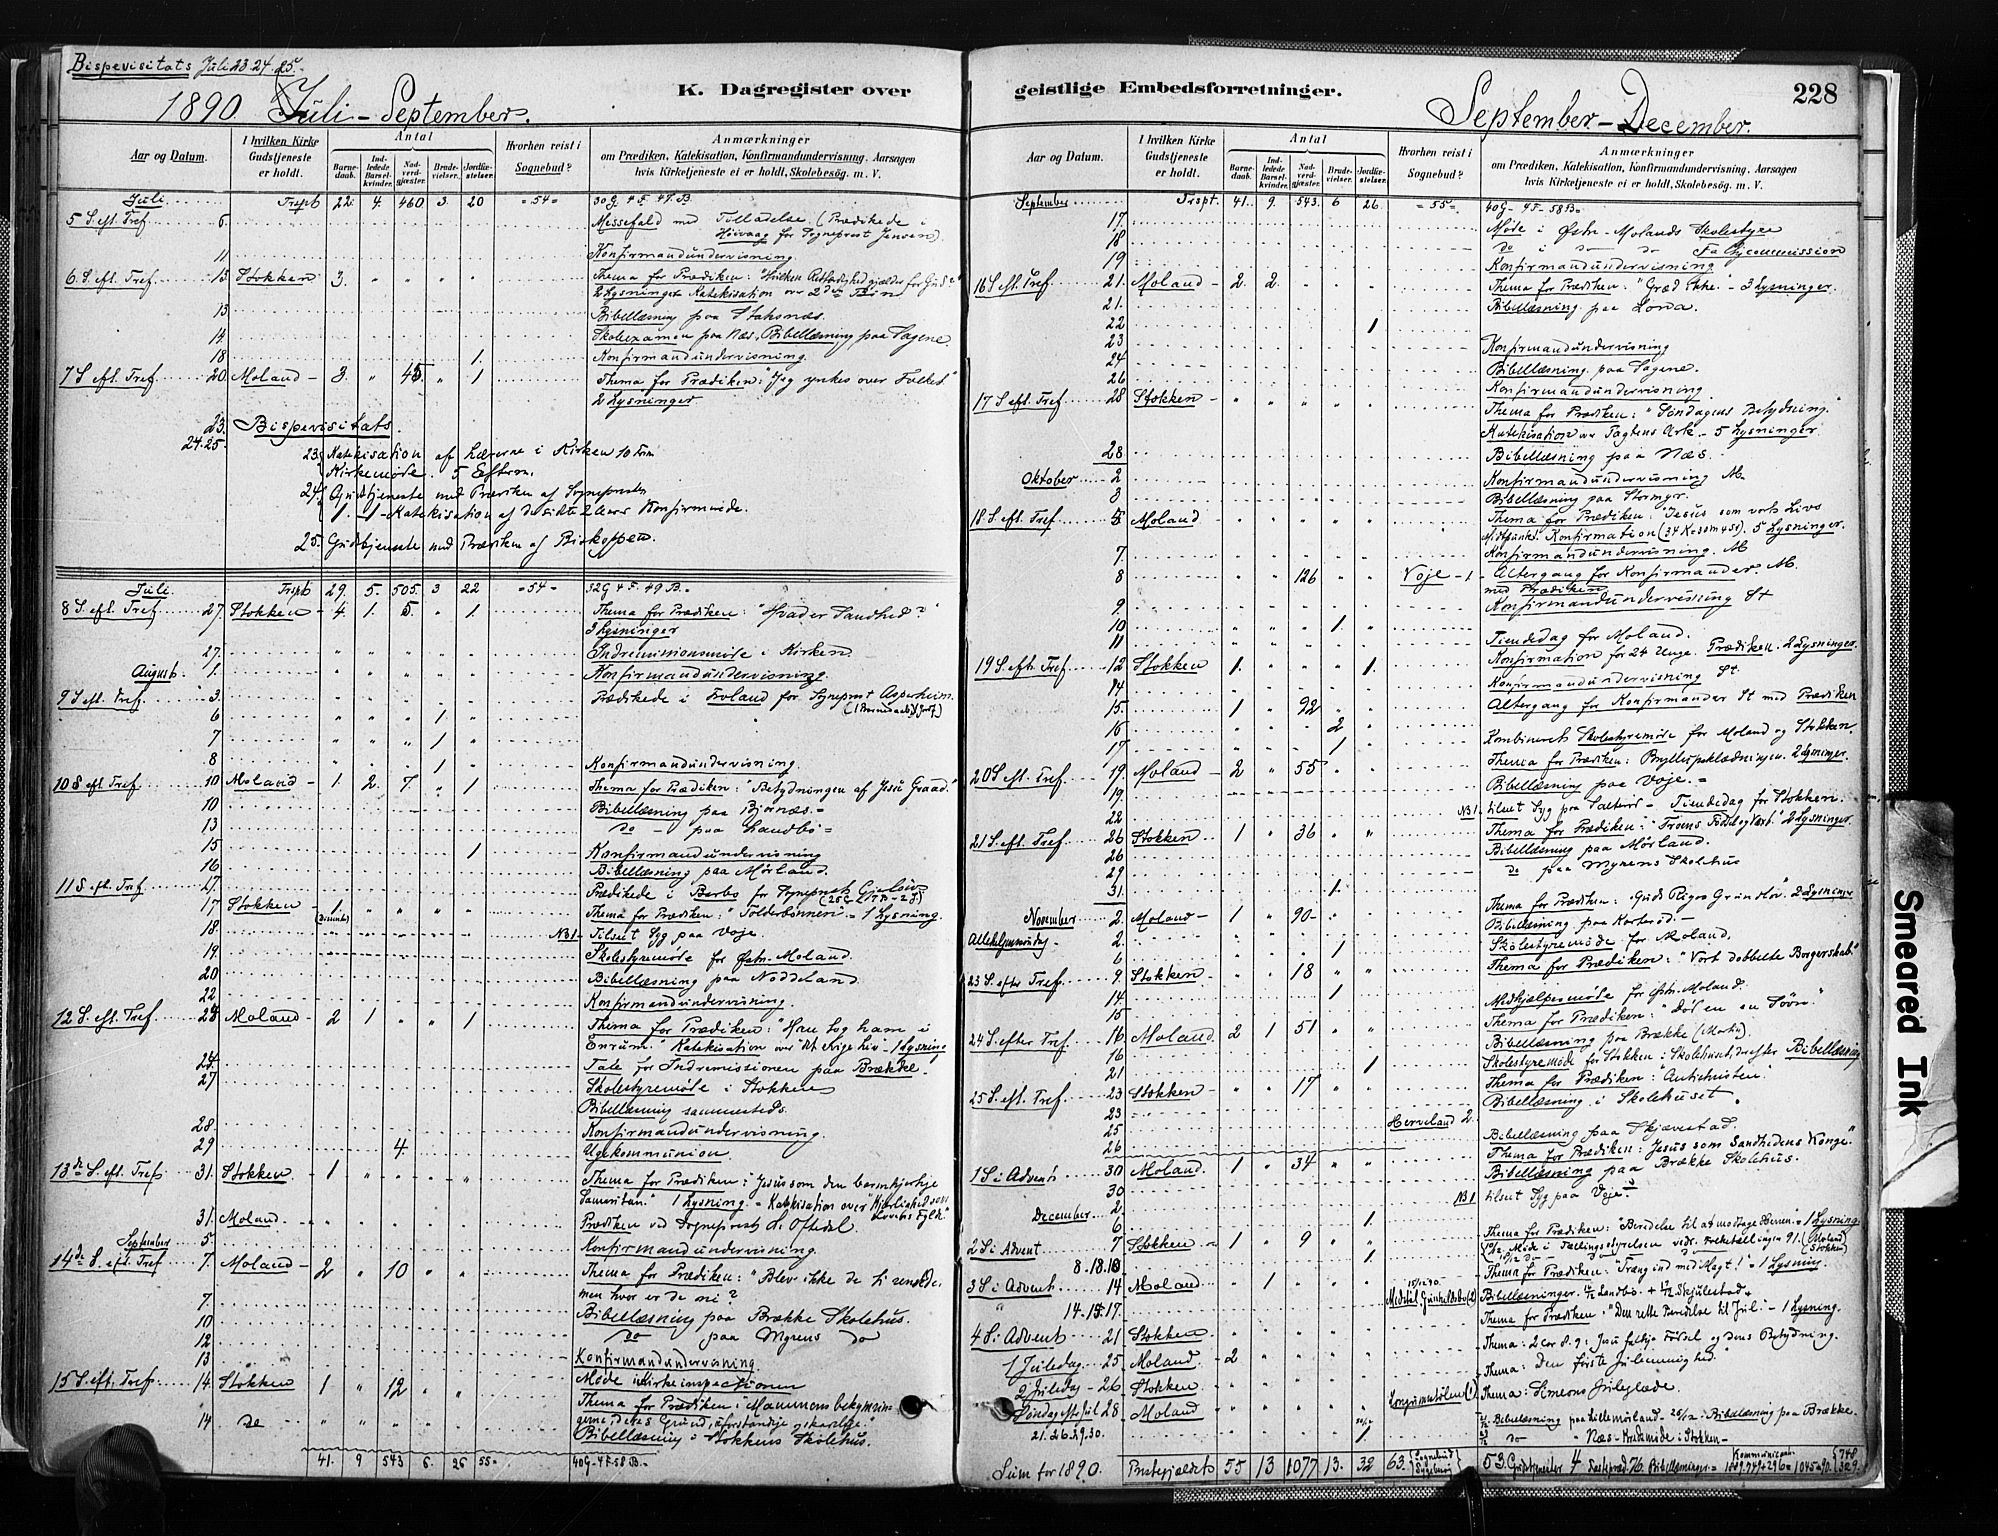 Bispevisitats Juli 23 24. 25.
1890. Juli - September.
K. Dagregister over
Aar og Datum.
I hvilken Kirke Gudstjeneste er holdt.
Antal
Barnedaab.
Indledede Barselkvinder.
Nadverdgjæster.
Brudevielser.
Jordfæstelser.
Hvorhen reist i Sognebud?
Anmærkninger
om Prædiken, Katekisation, Konfirmandundervisning. Aarsagen
hvis Kirketjeneste ei er holdt, Skolebesøg. m. V.
Juli Trspt 22. 4. 460 3. 20 =54= 30 G. 4 F. 47. B.
5 S. eft. Tref 6. Messefald med Tilladelse (Prædikede i
Høivaag for Sogneprest Jensen)
11 Konfirmandundervisning.
6. S. eft. Tref. 13 Stokken 3. Thema for Prædiken: "Hvilken Retfærdighed gjælder for Gud?"
2 Lysninger. Katekisation over 2den Bøn
13 Bibellæsning paa Staksnæs.
14. Skoleexamen paa Næs, Bibellæsning paa Sagene.
18 1. Konfirmandundervisning.
7 S eft. Tref. 20. Moland 3. 45. 1 Thema for Prædiken: "Jeg ynkes over Folket"
2 Lysninger
23. Bispevisitats.
24.25. 23. Katekisation af Lærerne i Kirken 10 Form
Kirkemøde. 5 Efterm.
24. Gudstjeneste med Prædiken af Sognepresten
Katekisation af de sidste 2 Aars Konfirmerede.
25. Gudstjeneste med Prædiken af Biskoppen.
Juli Trspt 29. 5. 505. 3 22 =54= 32 G 4 F. 49 B.
8 S. eft. Tref 27. Stokken 4. 1. 5. 1. Thema for Prædiken: "Hvad er Sandhed?"
3 Lysninger
27. Indremissionsmøde i Kirken.
August. 1. Konfirmandundervisning.
9 S eft. Tref. 3. Prædikede i Froland for Sogneprest Asperheim.
6 1
7 1
8 1 Konfirmandundervisning.
10 S eft Tref. 10 Moland 1. 2. 7. 1 Thema for Prædiken: "Betydningen af Jesu Graad."
10 Bibellæsning paa Bjørnæs.=
13 Do - paa Landbø=
15 1 Konfirmandundervisning
16 Bibellæsning paa Mørland.
11 S eft. Tref 17. Prædikede i Barbo for Sogneprest
17 Stokken 1. Thema for Prædiken: "Tolderbønnen" = 1 Lysning.
18. NB1 Tilseet Syg paa Voje.
19. Skolestyremøde for Østre Moland.
20 Bibellæsning paa Noddeland.
22 Konfirmandundervisning.
12 S. eft. Tref. 24 Moland 2 1 1 Thema for Prædiken: "Han tog ham i
Enrum." Katekisation over "Et Evige Liv" 1 Lysning
24. Tale for Indremissionen paa Brække.
27 Skolestyremøde i Stokken
Bibellæsning sammesteds.
28. Konfirmandundervisning.
29 4. Ugekommunion.
13de S. eft. Tref 31. Stokken 1 Thema for Prædiken: "Jesus som den barmhjertige
Samaritan." 1 Lysning. = Katekisation over "Kjærlighed som Lovens Fylde"
31. Moland. Prædiken ved Sogneprest L. Oftedal
September 5. Konfirmandundervisning.
14de S. eft. Tref 7. Moland 2 10 Thema for Prædiken: "Blev ikke de ti rensede.
men hvor er de ni?
7. Bibellæsning paa Brække Skolehus.
10 Do paa Myrens Do
12
13 Konfirmandundervisning.
15 S. eft. Tref. 14. Stokken 1 12 Møde i Kirkeinspectionen
Thema for Prædiken: Mammons bekymringerne,
14 Do Bibellæsning i Stokkens Skolehus.
41. 9 543 6. 26 55= 40 G - 4 F. 58 B. =
geistlige Embedsforretninger.
228
September - December.
Aar og Datum.
I hvilken Kirke Gudstjeneste er holdt.
Antal
Barnedaab.
Indledede Barselkvinder.
Nadverdgjæster.
Brudevielser.
Jordfæstelser.
Hvorhen reist i Sognebud?
Anmærkninger
om Prædiken, Katekisation, Konfirmandundervisning, Aarsagen
hvis Kirketjeneste ei er holdt, Skolebesøg. m. V.
September Trspt. 41. 9. 543. 6 26. =55= 40 G - 4 F - 58 B=
17. Møde i Østre-Molands Skolestyre
18 do i do do
19 Konfirmandundervisning
16 S. eft. Tref. 21. Moland 2. 2. Thema for Prædiken: "Græd ikke. - 3 Lysninger.
21. Bibellæsning paa
22 1
23 Konfirmandundervisning
24 Bibellæsning paa Sagene.
26 Konfirmandundervisning
17 S eft. Tref. 28 Stokken Thema for Prædiken: "Søndagens Betydning."
Katekisation over Pagtens Ark - 5 Lysninger
28 Bibellæsning paa Næs.
Oktober 2 Konfirmandundervisning M.
3 Bibellæsning paa Stormyr.
18. S. eft. Tref 5 Moland Thema for Prædiken: "Jesus som vort Livs
Midtpunkt. Konfirmation 5 Lysninger.
7. Konfirmandundervisning. M
8 126 Voje 1 Altergang for Konfirmander. M.
med Prædiken
9. Konfirmandundervisning St
10 1
11 Tiendedag for Moland.
19 S. eft. Tref. 12 Stokken 1. 1. Konfirmation for 24 Unge. Prædiken. 2 Lysninger.
14 Konfirmandundervisning St.
15. 1 92 Altergang for Konfirmander St med Prædiken
16 2
17 1 Kombineret Skolestyremøde for Moland og Stokken.
20 S. eft. Tref. 19. Moland 2 55 Thema for Prædiken: Bryllupsklædningen. 2 Lysninger.
19. Bibellæsning paa Voje. =
22 NB1. tilseet Syg paa Tiendedag for Stokken.
21 S. eft. Tref. 26 Stokken 1 36 Thema for Prædiken: "Troens Fødsel og Væxt." 2 Lysninger.
26 Bibellæsning paa Mørland.
29 Do paa Myrens Skolehus
31. 1.
November 2. Moland 1 90 Thema for Prædiken: "Guds Riges Grundlov." 2 Lysninger
Allehelgensøndag 2. Bibellæsning paa
6 1 Skolestyremøde for Moland.
23 S. efter Tref. 9 Stokken 18 Thema for Prædiken: "Vort dobbelte Borgerskab"
14. 1
15 Medhjælpermøde for Østr. Moland.
24 S. efter Tref 16. Moland. 2 1 51 Thema for Prædiken: "Død en en Søvn."
16 Bibellæsning paa Brække
21 1 Skolestyremøde for Stokken i Skolehuset, derefter Bibellæsning
25 S. eft. Tref. 23 Stokken 17 Thema for Prædiken: "Antichristen."
23 Bibellæsning i Skolehuset.
25 Herveland 2.
26 Bibellæsning paa Skjævestad.
1 S i Advent 30 Moland. 1 34 Thema for Prædiken: Jesus som Sandhedens Konge."
30 Bibellæsning paa Brække Skolehus.
December 2. NB1 tilseet Syg paa Voje.
6 1.
2 S i Advent 7 Stokken 1 9 Thema for Prædiken: "Beredelse til at modtage Herren." 1 Lysning.
8.18.13 1 Møde i Tællingsstyrelsen vedr. Folketællingen 91. (Moland Stokken)
3 S i Advent 14 Moland 1 Thema for Prædiken: "Træng ind med Magt!" = 1 Lysning.
14.15.17. Bibellæsninger. Landbø. + Skjulestad +
4 S i Advent 21 Stokken Thema for Prædiken: "Den rette Beredelse til Jul" - 1 Lysning.
1 Juledag 25 Moland. 2 Thema: 2 Cor. 8. 9: Jesu Fødsel og dens Betydning.
2 Juledag 26 Stokken Thema: Den første Julemenighed."
Søndag eft. Jul 28 Moland Thema: Simeons Juleglæde.
21. 26. 29. 30. 1 Bibellæsning paa Lillemørland - 26/12 - Bibellæsning paa Brække.
Do Næs - Kredsmøde i Stokken -
Sum for 1890. Prstegjældets 55 13 1077 13. 32 63. Sognebud Sygebesøg 53. Gudstjenester 4 Fastepræd. 76. Bibellæsninger
Smeared Ink